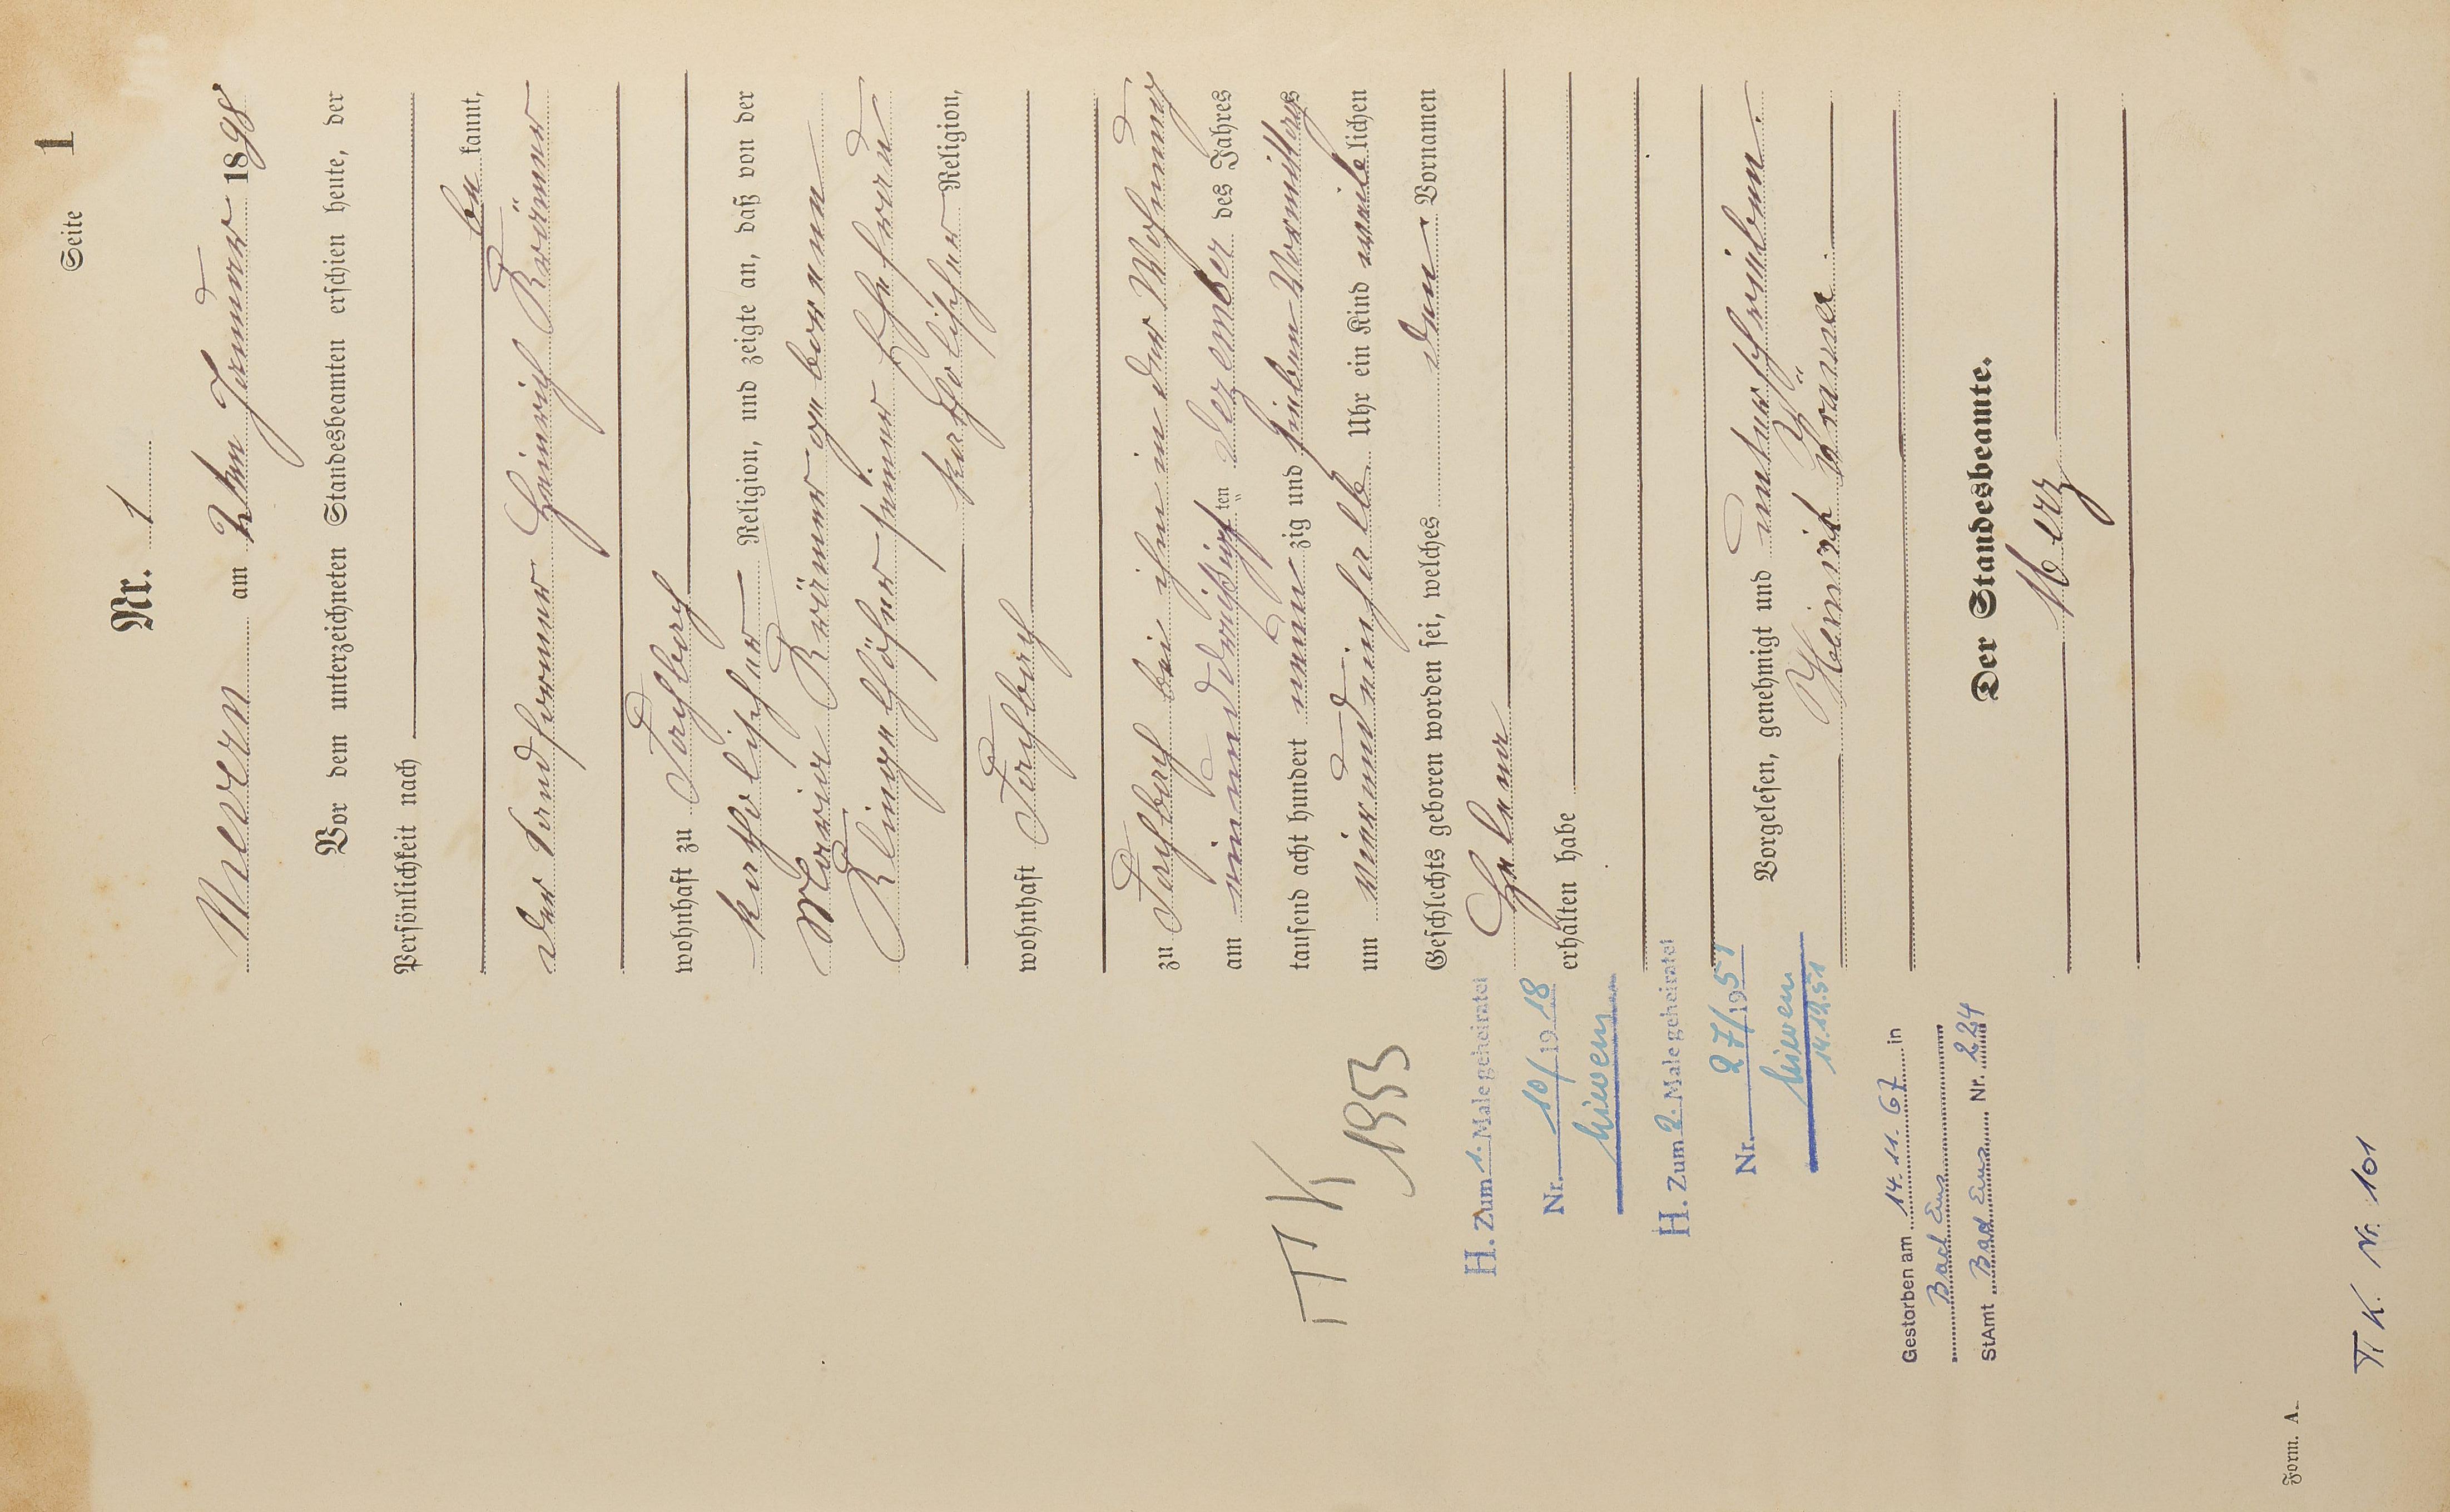 Seite 1
Nr. 1
Nievern am 2ten Januar 1898
Vor dem unterzeichneten Standesbeamten erschien heute, der
Persönlichkeit nach
be kannt,
der Sandformer Heinrich Krämer
wohnhaft zu Fachbach
katholischer Religion, und zeigte an, daß von der
Maria Krämer geborenen
Klingelhöfer seiner Ehefrau
katholischer Religion,
wohnhaft Fachbach
zu Fachbach bei ihm in der Wohnung
am einunddreißigsten Dezember des Jahres
tausend acht hundert neun zig und sieben Vormittags
um viereinhalb Uhr ein Kind weib lichen
Geschlechts geboren worden sei, welches den Vornamen
Helene
erhalten habe
Vorgelesen, genehmigt und unterschrieben.
Heinrich Krämer
Der Standesbeamte.
Merz
TK
1953
H. Zum 1. Male geheiratet
Nr. 10/1918
Nievern
H. Zum 2. Male geheiratet
Nr. 27/1951
Nievern
14.12.51
Gestorben am 14.11.67 in
Bad Ems
StAmt Bad Ems Nr. 224
TK Nr. 101
Form. A.